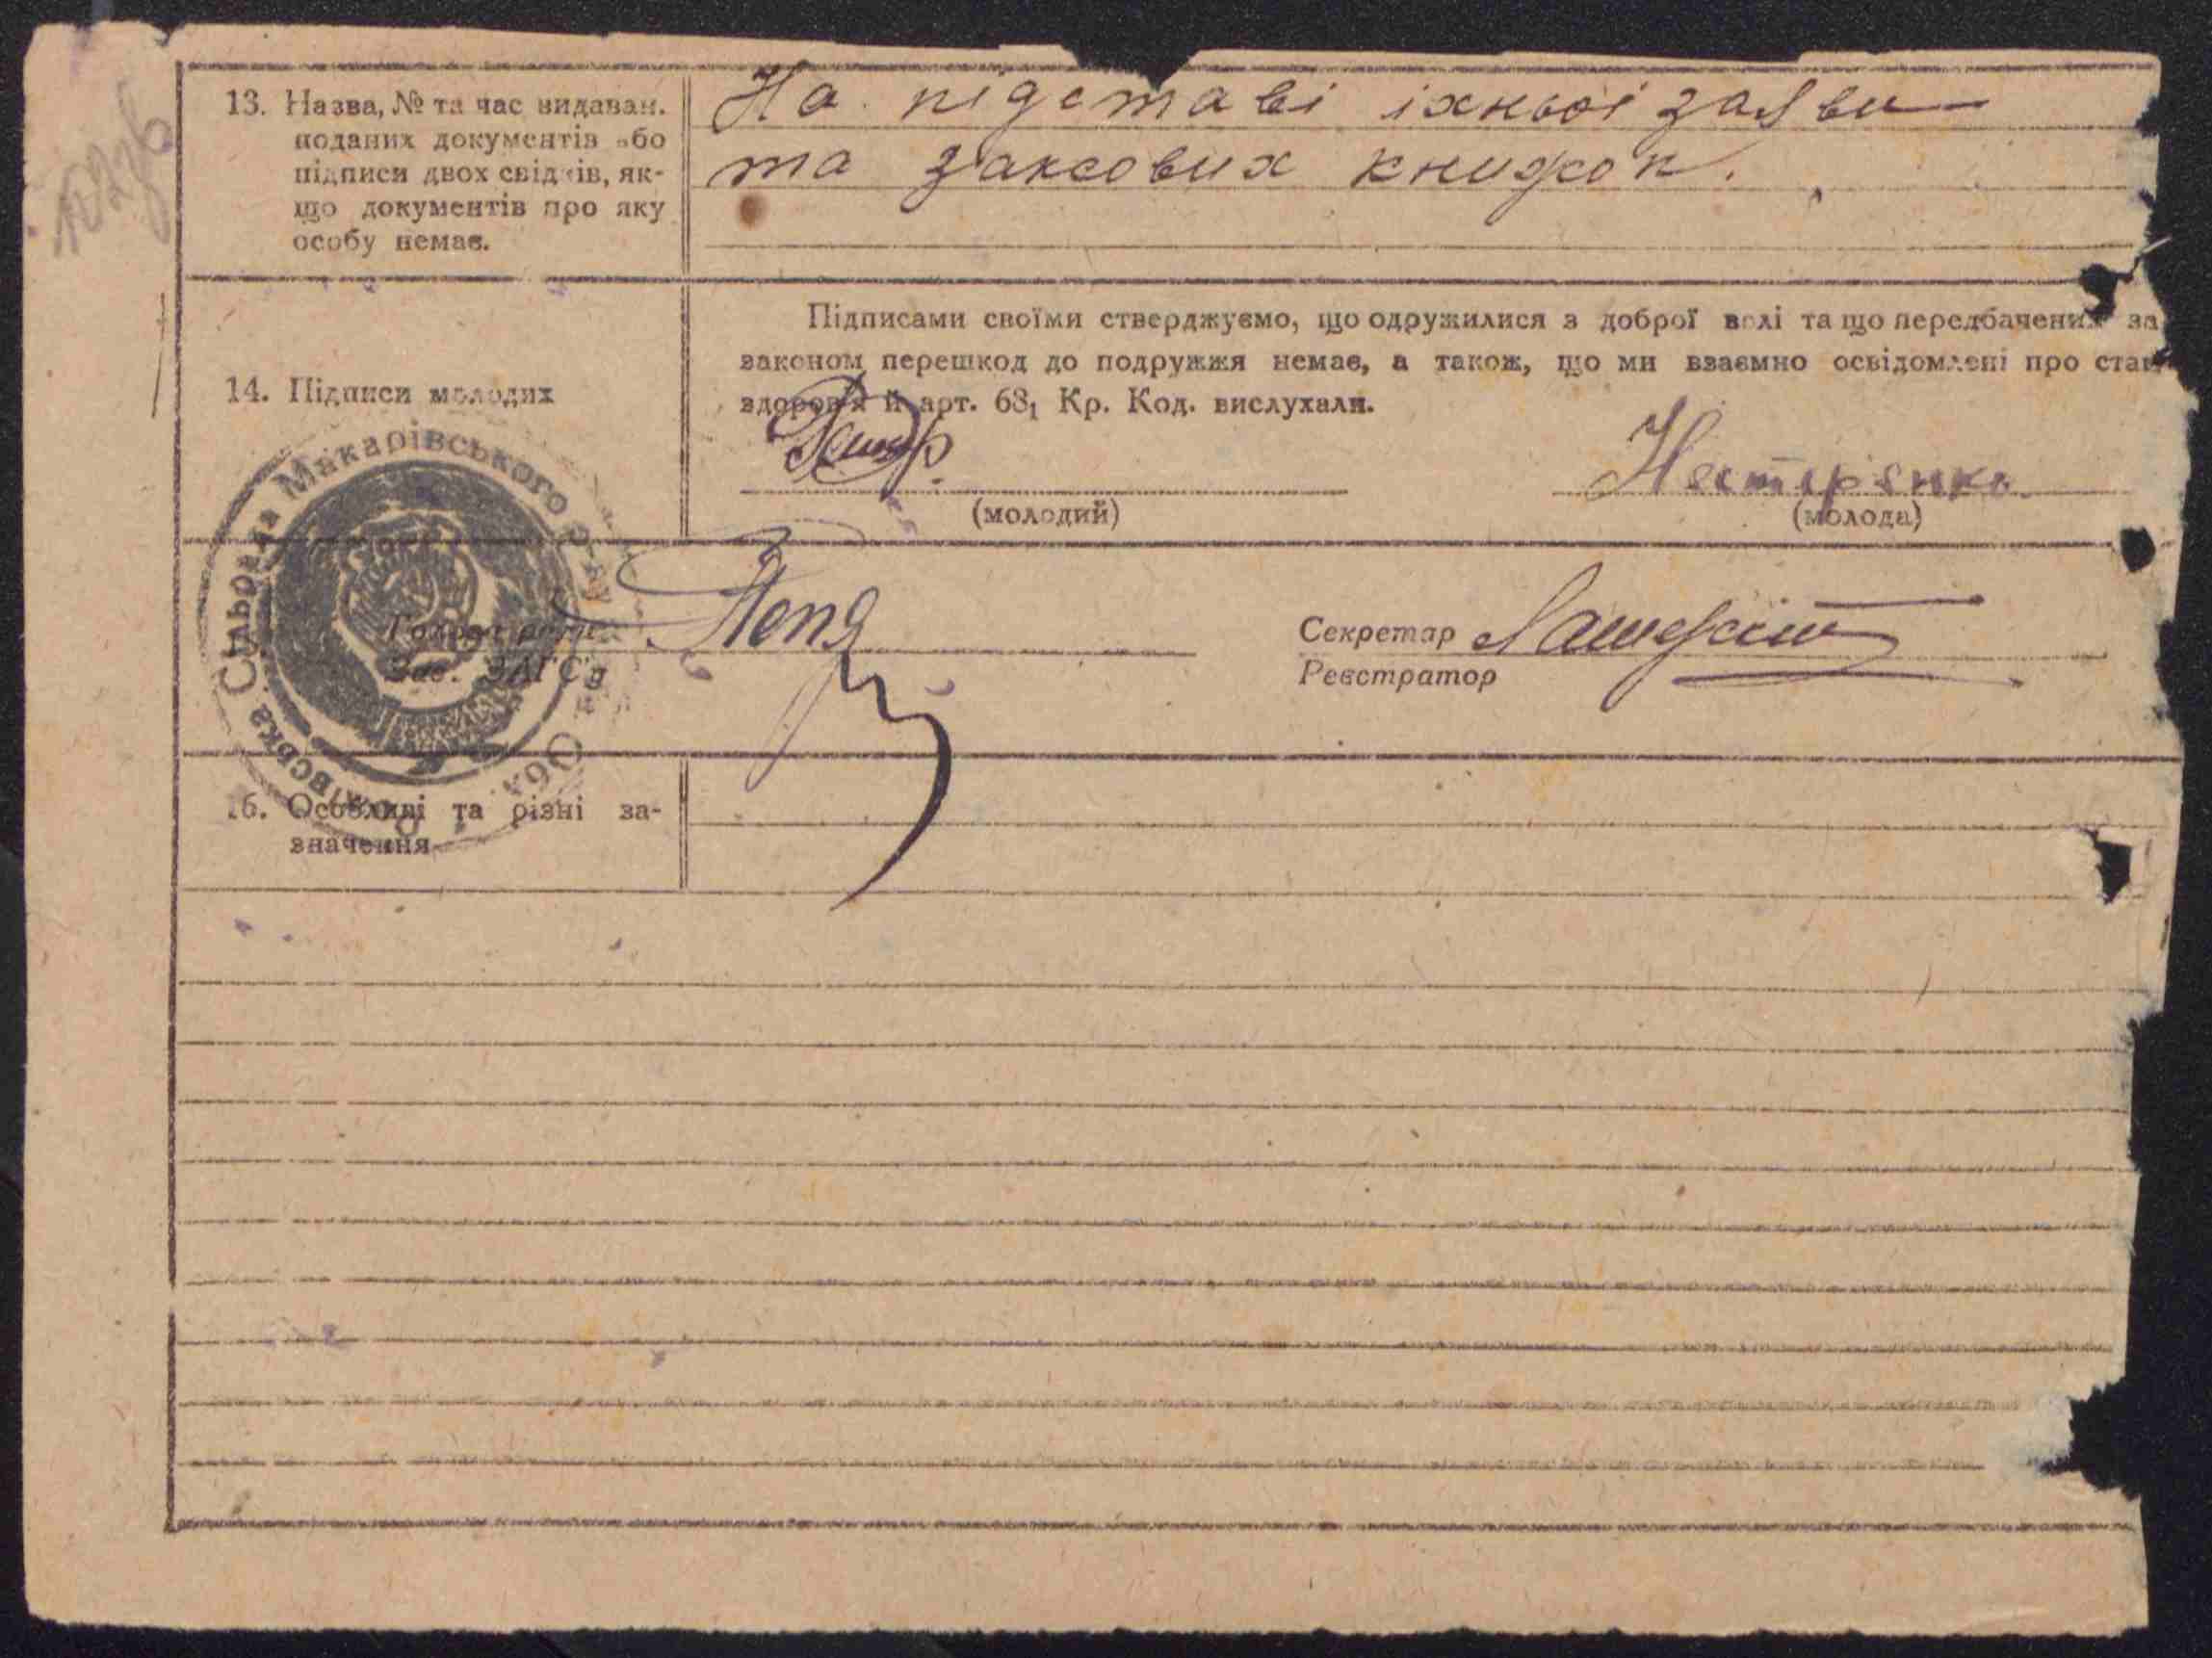 102зв
13. Назва, № та час видаван.
поданих документів або
підписи двох свідків, як-
що документів про яку
особу немає.
На підставі їхньої заяви
та загсових книжок.
14. Підписи молодих
Підписами своїми стверджуємо, що одружилися з доброї волі та що передбачених за
законом перешкод до подружжя немає, а також, що ми взаємно освідомлені про стан
здоров'я й арт. 68₁ Кр. Код. вислухали.
Нестеренко
(молодий)
(молода)
Сільрада Макарівського р-ну
Голова ради
Зав. ЗАГС'у
Секретар
Реєстратор
16. Особливі та різні за-
значення